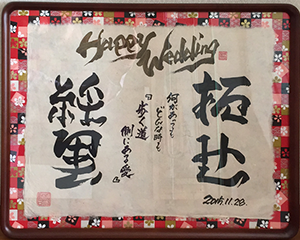 Happy Wedding
拓也
何があっても
どんな時も
『歩く道
側にある愛』
絵里
2015.11.28.